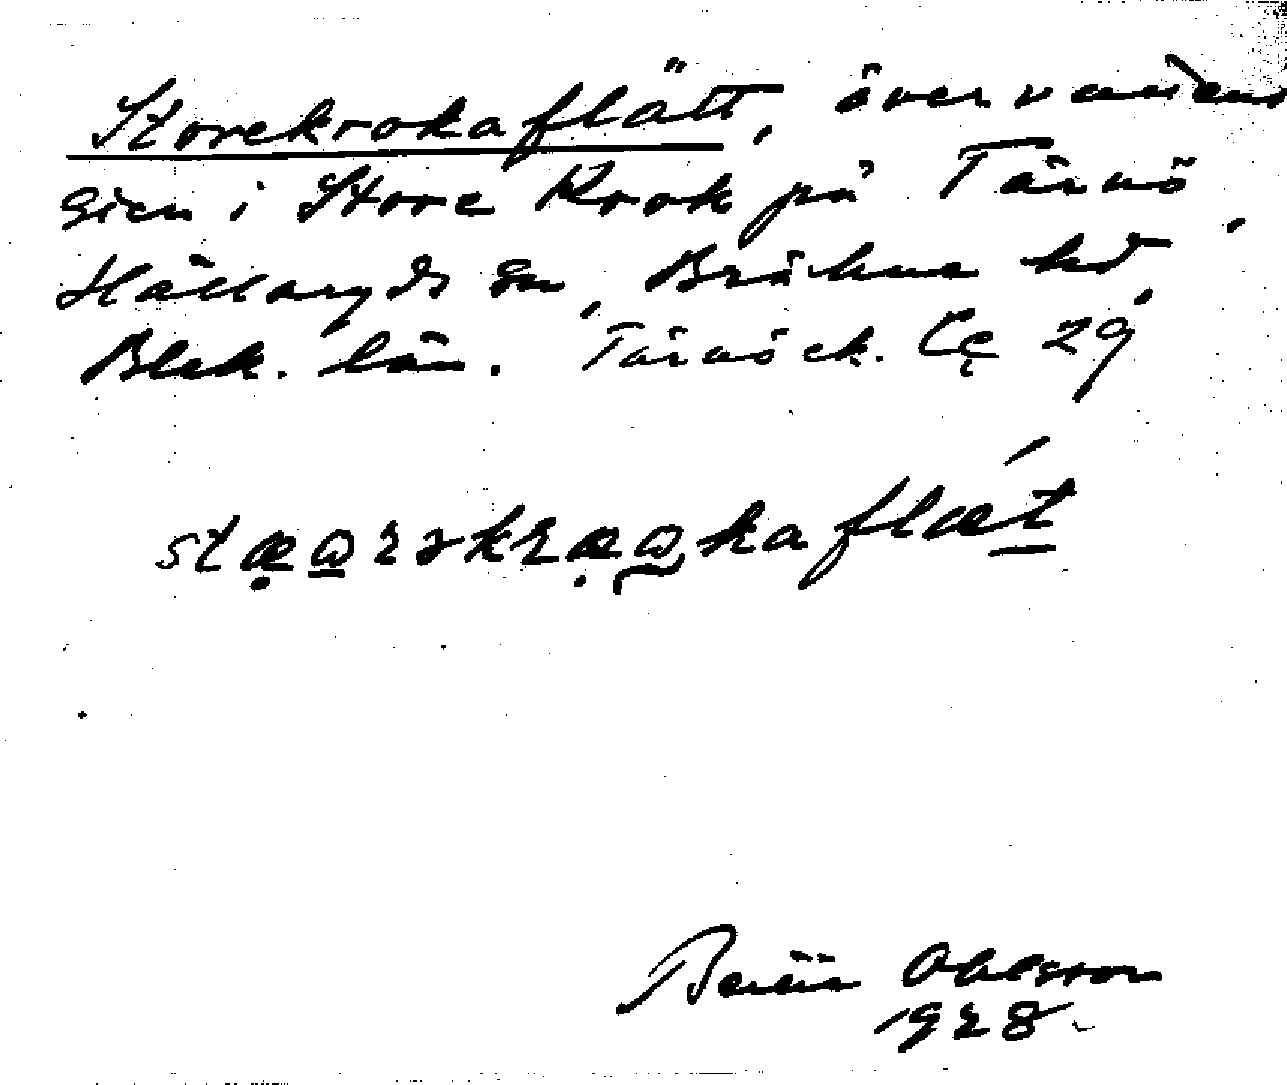 Storekrokaflätt, övervattens
grön i Store Krok på Tärnö,
Hällaryds sn, Bräkne hd,
Blek. län. Tärnö ek. Cç 29
stæꞷrəkræꞷkaflæt
Ohlsson
1928.